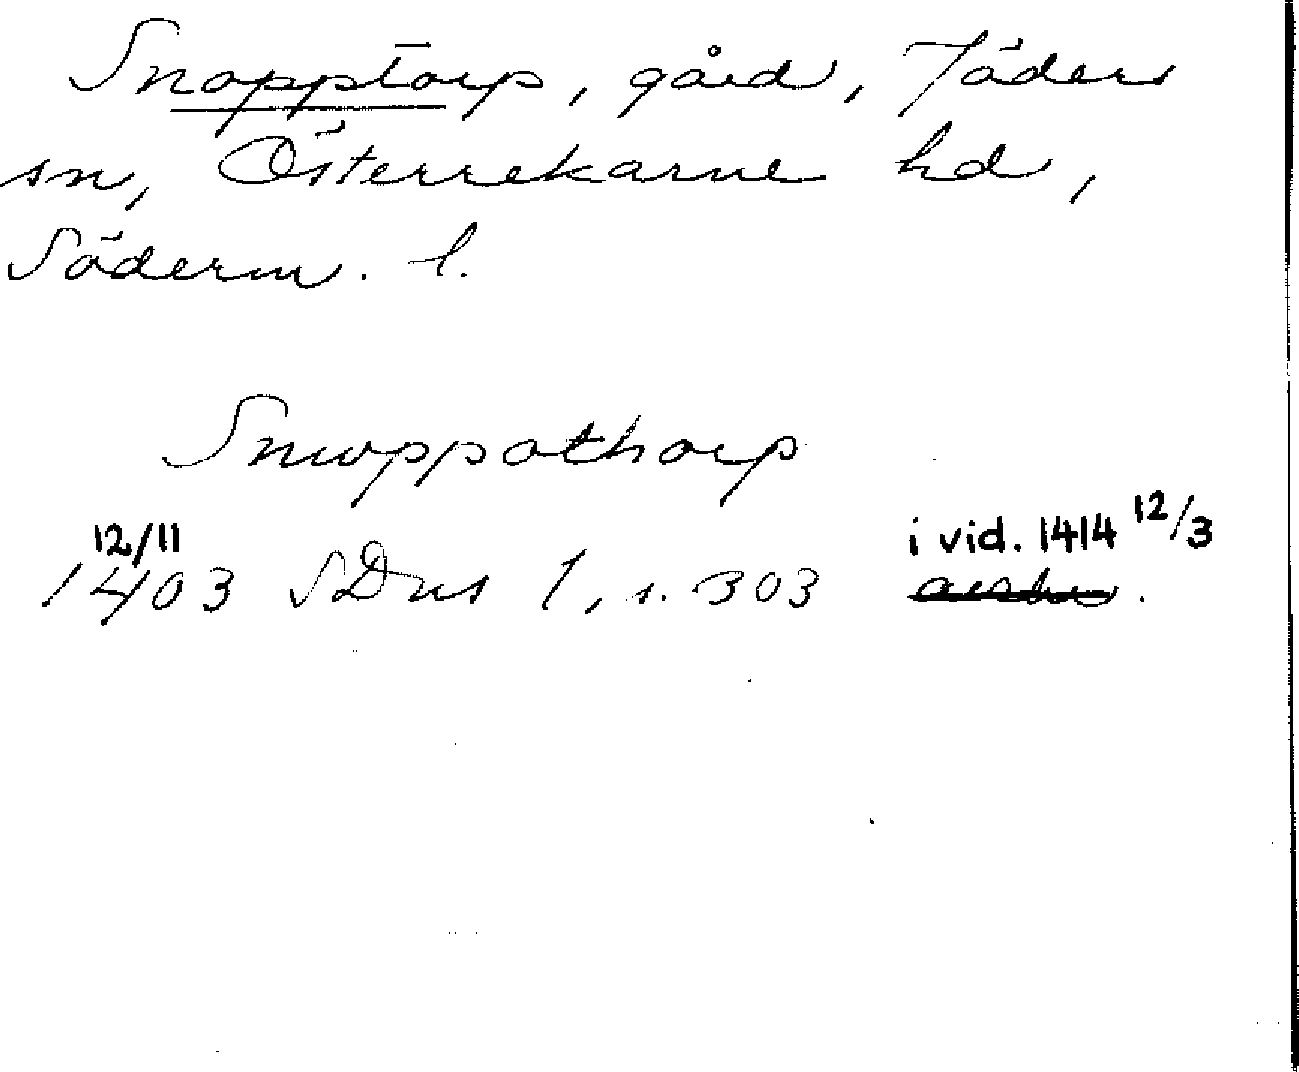 Snopptorp, gård, Jäders
sn, Österrekarne hd,
Söderm. l.
Snwppothorp
12/11 i vid. 1414 12/3
1403 SDns 1, s. 303